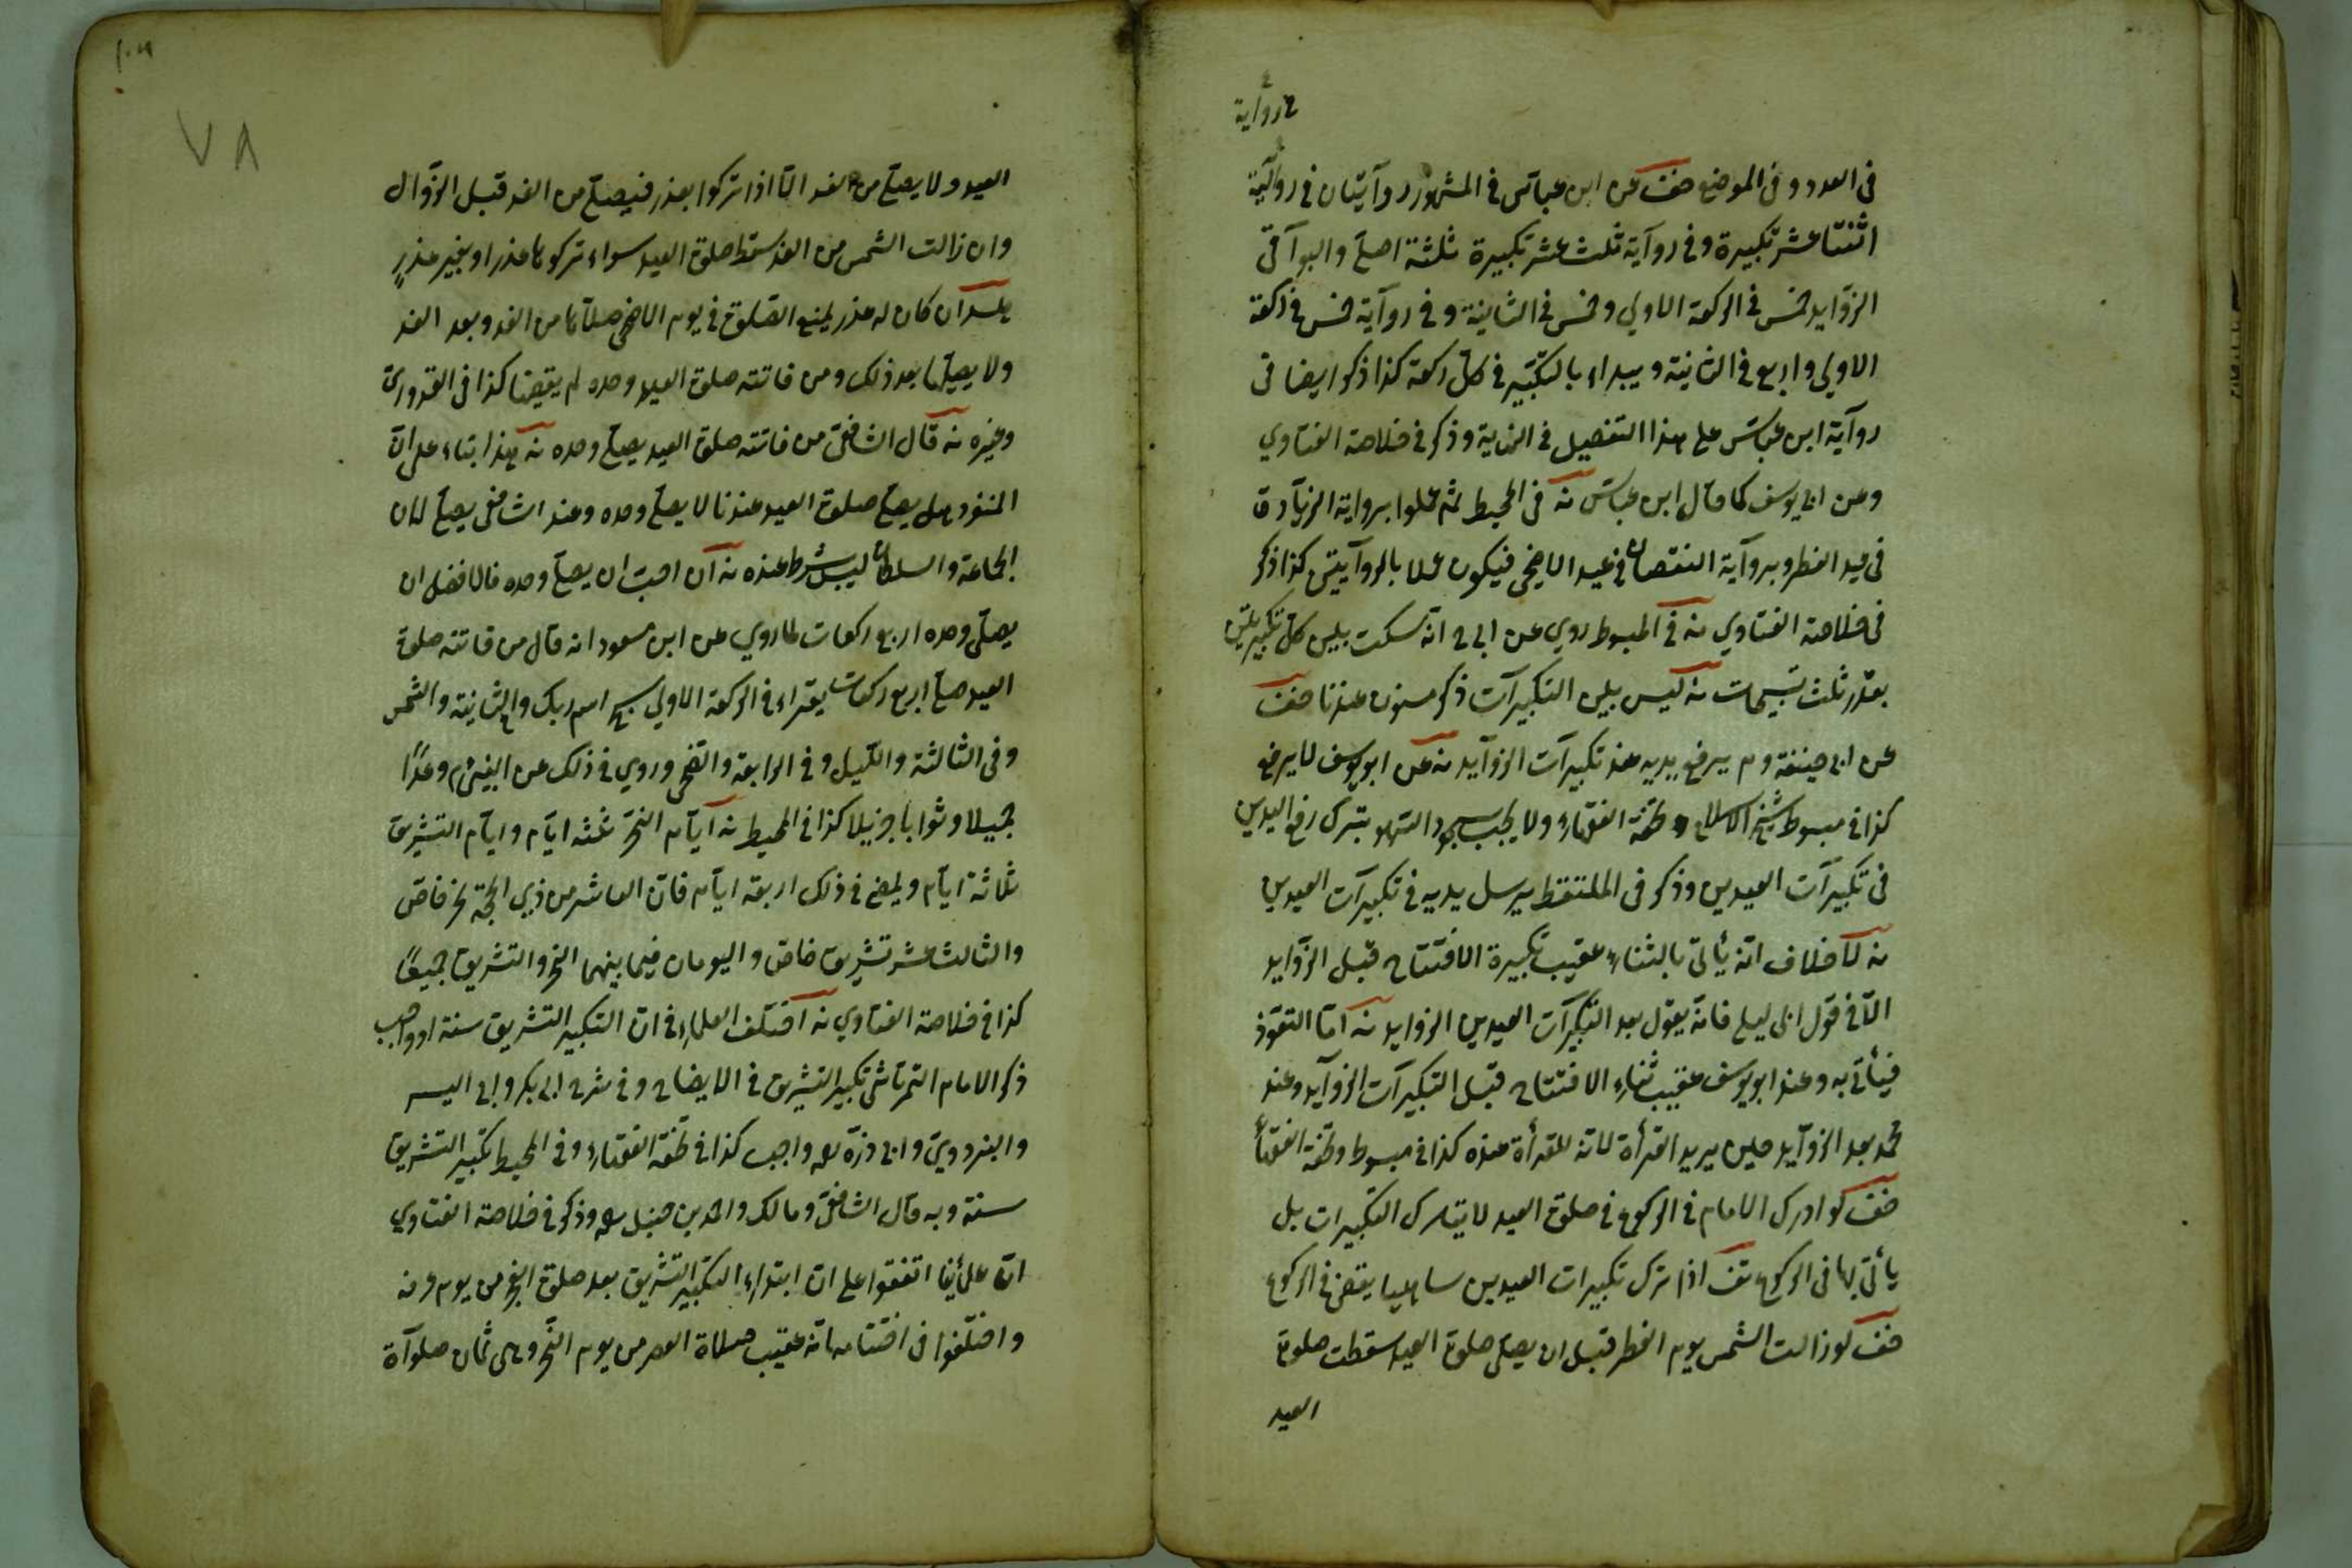 في رواية
فى العدد و فى الموضع خف عن ابن عباس فى المشهور روآيتان فى روآية
اثنتا عشر تكبيرة و فى روآية ثلث عشر تكبيرة ثلثة اصلى والبوآقى
الزوآيد خمس فى الركعة الاولي وخمس فى الثانية و فى روآية خمس فى ركعة
الاولي واربع فى الثانية و يبداء بالتكبير فى كل ركعة كذا ذكر ايضا فى
روآية ابن عباس على هذا التفصيل فى النهاية وذكر فى خلاصة الفتاوي
وعن ابى يوسف كما قال ابن عباس نه فى المحيط ثم عملوا برواية الزيآدة
فى عيد الفطر وبروآية النقصان فى عيد الاضحى فيكون عملا بالروآيتين كذا ذكر
فى خلاصة الفتاوي نه فى المبسوط روي عن ابى ح انه سكت بين كل تكبيرتين
بقدر ثلث تسبيحات نه ليس بين التكبيرآت ذكر مسنون عندنا خف
عن ابى حنيفة وم يرفع يديه عند تكبيرآت الزوآيد نه عن ابو يوسف لا يرفع
كذا فى مبسوط شيخ الاسلام و تحفة الفقهاء ولا يجب سجود السهو بترك رفع اليدين
فى تكبيرآت العيدين وذكر فى الملتقط يرسل يديه فى تكبيرآت العيدين
نه لا خلاف انه يأتى بالثناء عقيب تكبيرة الافتتاح قبل الزوآيد
الا فى قول ابى ليلى فانه يقول بعد التكبيرآت العيدين الزوايد نه اما التعوذ
فيأتى به وعند ابو يوسف عقيب ثناء الافتتاح قبل التكبيرآت الزوآيد وعند
محمد بعد الزوآيد حين يريد القرأة لانه للقرأة عنده كذا فى مبسوط وتحفة الفقهاء
خف لو ادرك الامام فى الركوع فى صلوة العيد لا يترك التكبيرات بل
يأتى بها فى الركوع تف اذا ترك تكبيرات العيدين ساهيا يقضى فى الركوع
خف لو زالت الشمس يوم الفطر قبل ان يصلى صلوة العيد سقطت صلوة
العيد
٧٨
العيد ولا يصلى من الغد الا اذا تركوا بعذر فيصلى من الغد قبل الزوال
وان زالت الشمس من الغد سقط صلوة العيد سواء تركوها عذر او بغير عذر
ان كان له عذر يمنع الصلوة فى يوم الاضحى صلاها من الغد وبعد الغد
ولا يصليها بعد ذلك ومن فاتته صلوة العيد وحده لم يقضها كذا فى القدورى
وغيره نه قال الشافعى من فاتته صلوة العيد يصلى وحده نه هذا بناء على ان
المنفرد هل يصلى صلوة العيد عندنا لا يصلى وحده وعند الشافعى يصلى لان
الجماعة والسلطان ليس بشرط عنده نه ان احب ان يصلى وحده فالافضل ان
يصلى وحده اربع ركعات لما روي عن ابن مسعود انه قال من فاتته صلوة
العيد صلى اربع ركعات يقراء فى الركعة الاولي سبح اسم ربك والثانية والشمس
وفى الثالثة والليل و فى الرابعة والضحى وروي فى ذلك عن النبى م وعدًا
جميلا وثوابا جزيلا كذا فى المحيط نه آيآم النحر ثلثه ايآم وايآم التشريق
ثلاثة ايآم ويمضى فى ذلك اربعة ايآم فان العاشر من ذي الحجة نحر خاص
والثالث عشر تشريق خاص واليومان فيما بينهما النحر والتشريق جميعًا
كذا فى خلاصة الفتاوي نه اختلف العلماء فى ان التكبير التشريق سنة او واجب
ذكر الامام التمرتاشى تكبير التشريق فى الايضاح و فى شرح ابى بكر وابى اليسر
والبزدوي وابى ذر واجب كذا فى تحفة الفقهاء وفى المحيط تكبير التشريق
سنة وبه قال الشافعى ومالك واحمد بن حنبل وذكر فى خلاصة الفتاوي
ان علمأينا اتفقوا على ان ابتداء التكبير التشريق بعد صلوة الفجر من يوم عرفه
واختلفوا فى اختتامه انه عقيب صلاة العصر من يوم النحر وهى ثمان صلوآة